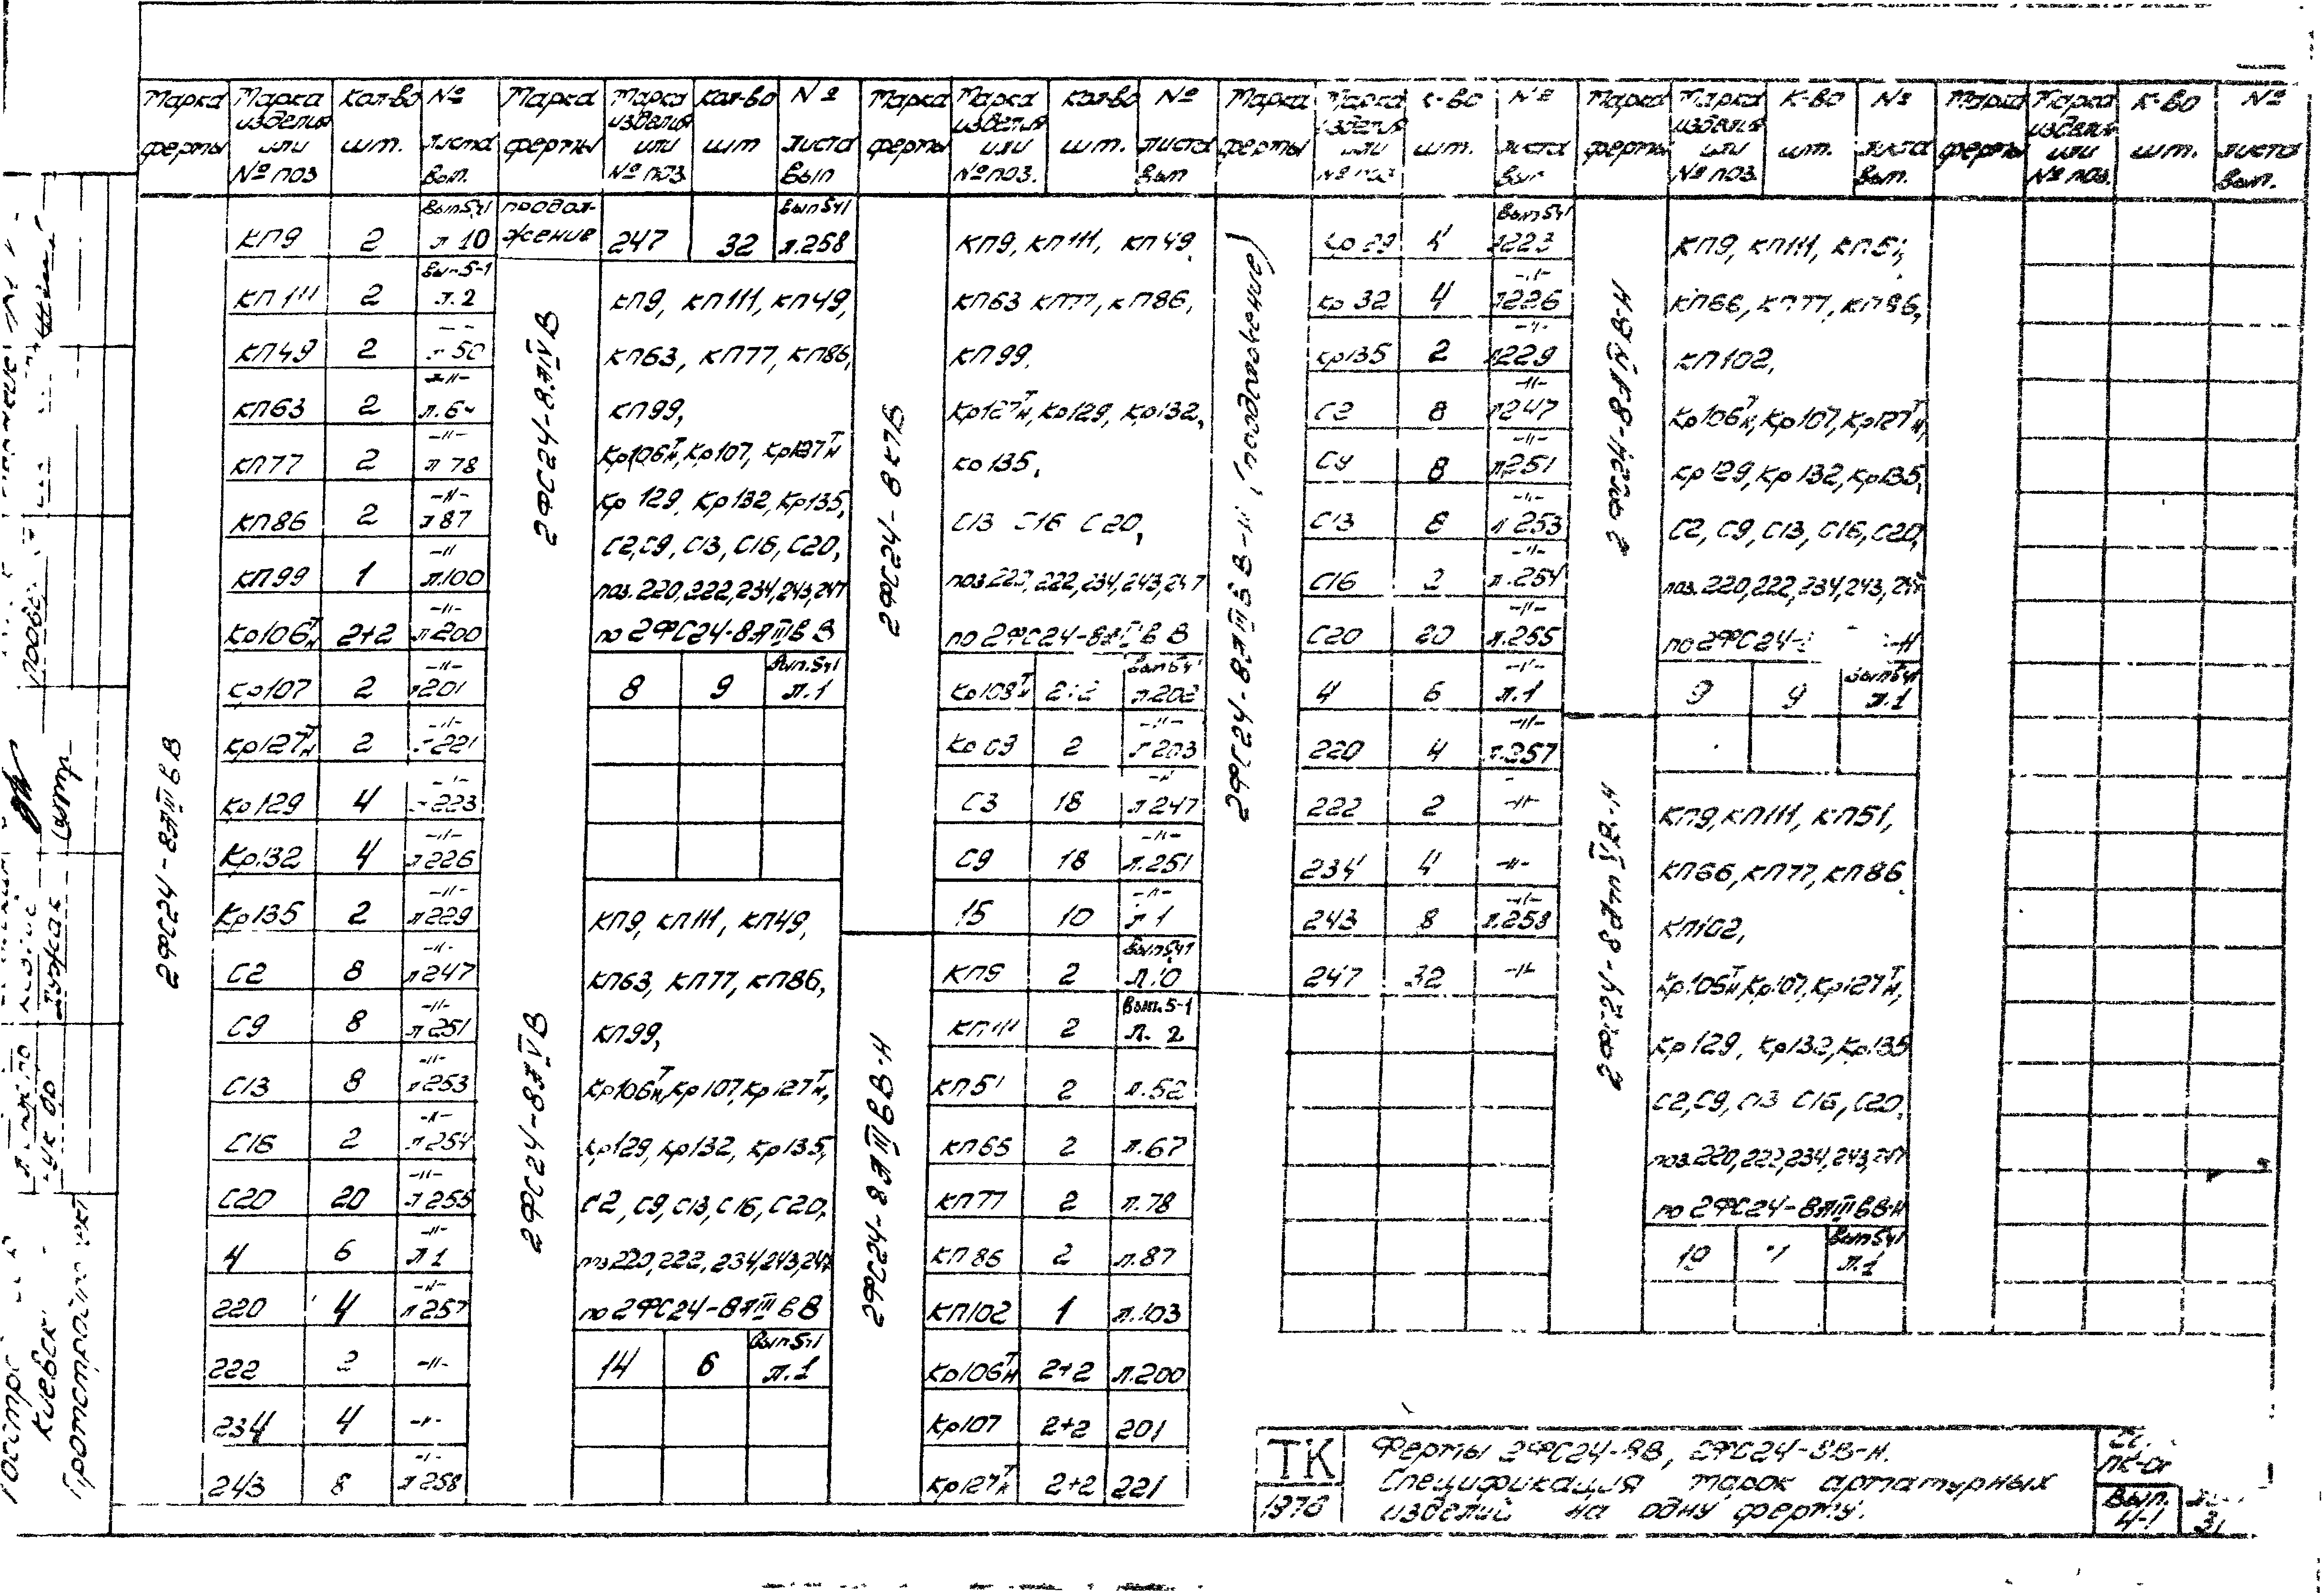 Марка фермы | Марка изделия или № поз | Кол-во шт. | № листа Вып. | Марка фермы | Марка изделия или № поз | Кол-во шт | № листа Вып | Марка фермы | Марка изделия или № поз. | Кол-во шт. | № листа Вып | Марка фермы | Марка изделия или № поз | К-во шт. | № листа Вып | Марка фермы | Марка изделия или № поз. | К-во шт. | № листа Вып. | Марка фермы | Марка изделия или № поз. | К-во шт. | № листа Вып.
2ФС24-8АIIIвВ
КП9 2 Вып5ч1 л 10
КП111 2 Вып5-1 л.2
КП49 2 л 50
КП63 2 -"- л.64
КП77 2 -"- л 78
КП86 2 -"- л 87
КП99 1 -"- л.100
Кр106Т/Н 2+2 -"- л 200
Кр107 2 -"- л 201
Кр127Т/Н 2 -"- 221
Кр129 4 -"- 223
Кр132 4 -"- л 226
Кр135 2 -"- л 229
С2 8 -"- л 247
С9 8 -"- л 251
С13 8 -"- л 253
С16 2 -"- л 254
С20 20 -"- л 255
4 6 -"- л 1
220 4 -"- л 257
222 2 -"-
234 4 -"-
243 8 -"- л 258
продол-
жение 247 32 Вып5ч1 л.258
2ФС24-8АIVВ
КП9, КП111, КП49,
КП63, КП77, КП86,
КП99,
Кр106Т/Н, Кр107, Кр127Т/Н
Кр 129, Кр132, Кр135,
С2, С9, С13, С16, С20,
поз.220, 222, 234, 243, 247
по 2ФС24-8АIIIвВ
8 9 Вып.5ч1 л.1
2ФС24-8АVВ
КП9, КП111, КП49,
КП63, КП77, КП86,
КП99,
Кр106Т/Н, Кр107, Кр127Т/Н,
Кр129, Кр132, Кр135,
С2, С9, С13, С16, С20,
поз220, 222, 234, 243, 247
по 2ФС24-8АIIIвВ
14 6 Вып5ч1 л.1
2ФС24-8К7В
КП9, КП111, КП49
КП63 КП77, КП86,
КП99.
Кр127Т/Н, Кр129, Кр132,
Кр135,
С13 С16 С20,
поз.220, 222, 234, 243, 247
по 2ФС24-8АIIIвВ
Кр108Т/Н 2+2 Вып5ч1 л.202
2 -"- л 203
С3 18 -"- л 247
С9 18 -"- л.251
15 10 -"- л 1
2ФС24-8АIIIвВ-Н
КП9 2 Вып5ч1 л.10
КП111 2 Вып.5-1 л. 2
КП51 2 л.52
2 л.67
КП77 2 л.78
КП86 2 л.87
КП102 1 л.103
Кр106Т/Н 2+2 л.200
Кр107 2+2 201
Кр127Т/Н 2+2 221
2ФС24-8АIIIвВ-Н (продолжение)
Кр 129 4 Вып5ч1 л223
Кр 132 4 -"- л226
Кр135 2 -"- л229
С2 8 -"- л247
С9 8 -"- л251
С13 8 -"- л 253
С16 2 -"- л.254
С20 20 -"- л.255
4 6 -"- л.1
220 4 -"- л.257
222 2 -"-
234 4 -"-
243 8 -"- л.258
247 32 -"-
2ФС24-8АIVВ-Н
КП9, КП111, КП51,
КП66, КП77, КП86,
КП102,
Кр106Т/Н, Кр107, Кр127Т/Н,
Кр129, Кр132, Кр135,
С2, С9, С13, С16, С20,
поз.220, 222, 234, 243, 247
по 2ФС24- -Н
9 9 Вып5ч1 л.1
2ФС24-8АтVВ-Н
КП9, КП111, КП51,
КП66, КП77, КП86
КП102,
Кр106Т/Н, Кр107, Кр127Т/Н,
Кр129, Кр132, Кр135
С2, С9, С13 С16, С20,
поз.220, 222, 234, 243, 247
по 2ФС24-8АIIIвВ-Н
Вып5ч1 л.1
ТК
1976
Фермы 2ФС24-8В, 2ФС24-8В-Н.
Спецификация марок арматурных
изделий на одну ферму.
Вып. 4-1
31
Киевск
Промстройпроект